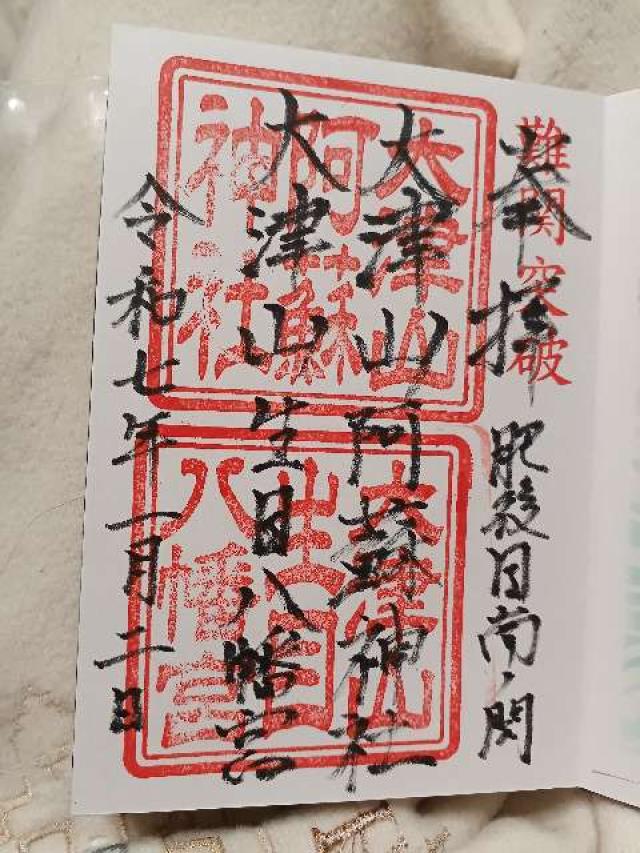 難関突破
奉拝
肥後国南ノ関
大津山阿蘇神社
大津山生目八幡宮
令和七年一月二日
大津山
阿蘇
神社
大津山
生目
八幡宮